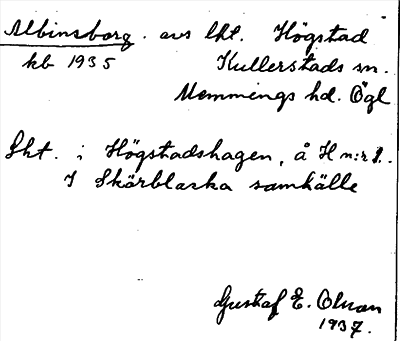 Albinsborg. avs lht. Högstad
kb 1935 Kullerstads sn.
Memmings hd. Ögl
Lht. i Högstadshagen, å H n:r 1.
I Skärblacka samhälle
Gustaf E. Olsson
1937.